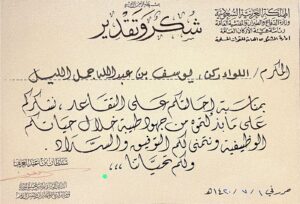 بسم الله الرحمن الرحيم
شكر وتقدير
المملكة العربية السعودية
المكرم / اللواء ركن يوسف بن عبدالله جمل الليل
بمناسبة إحالتكم على التقاعد، نشكركم
على ما بذلتموه من جهود طيبة خلال حياتكم
الوظيفية ونتمنى لكم التوفيق والسداد.
ولكم تحياتنا ،،،
حرر في ١ / ٧ / ١٤٢٠هـ